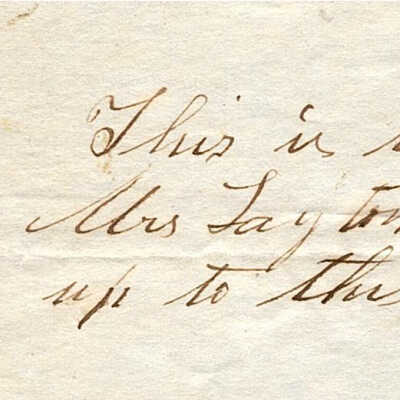 This is
Mrs Layton
up to this